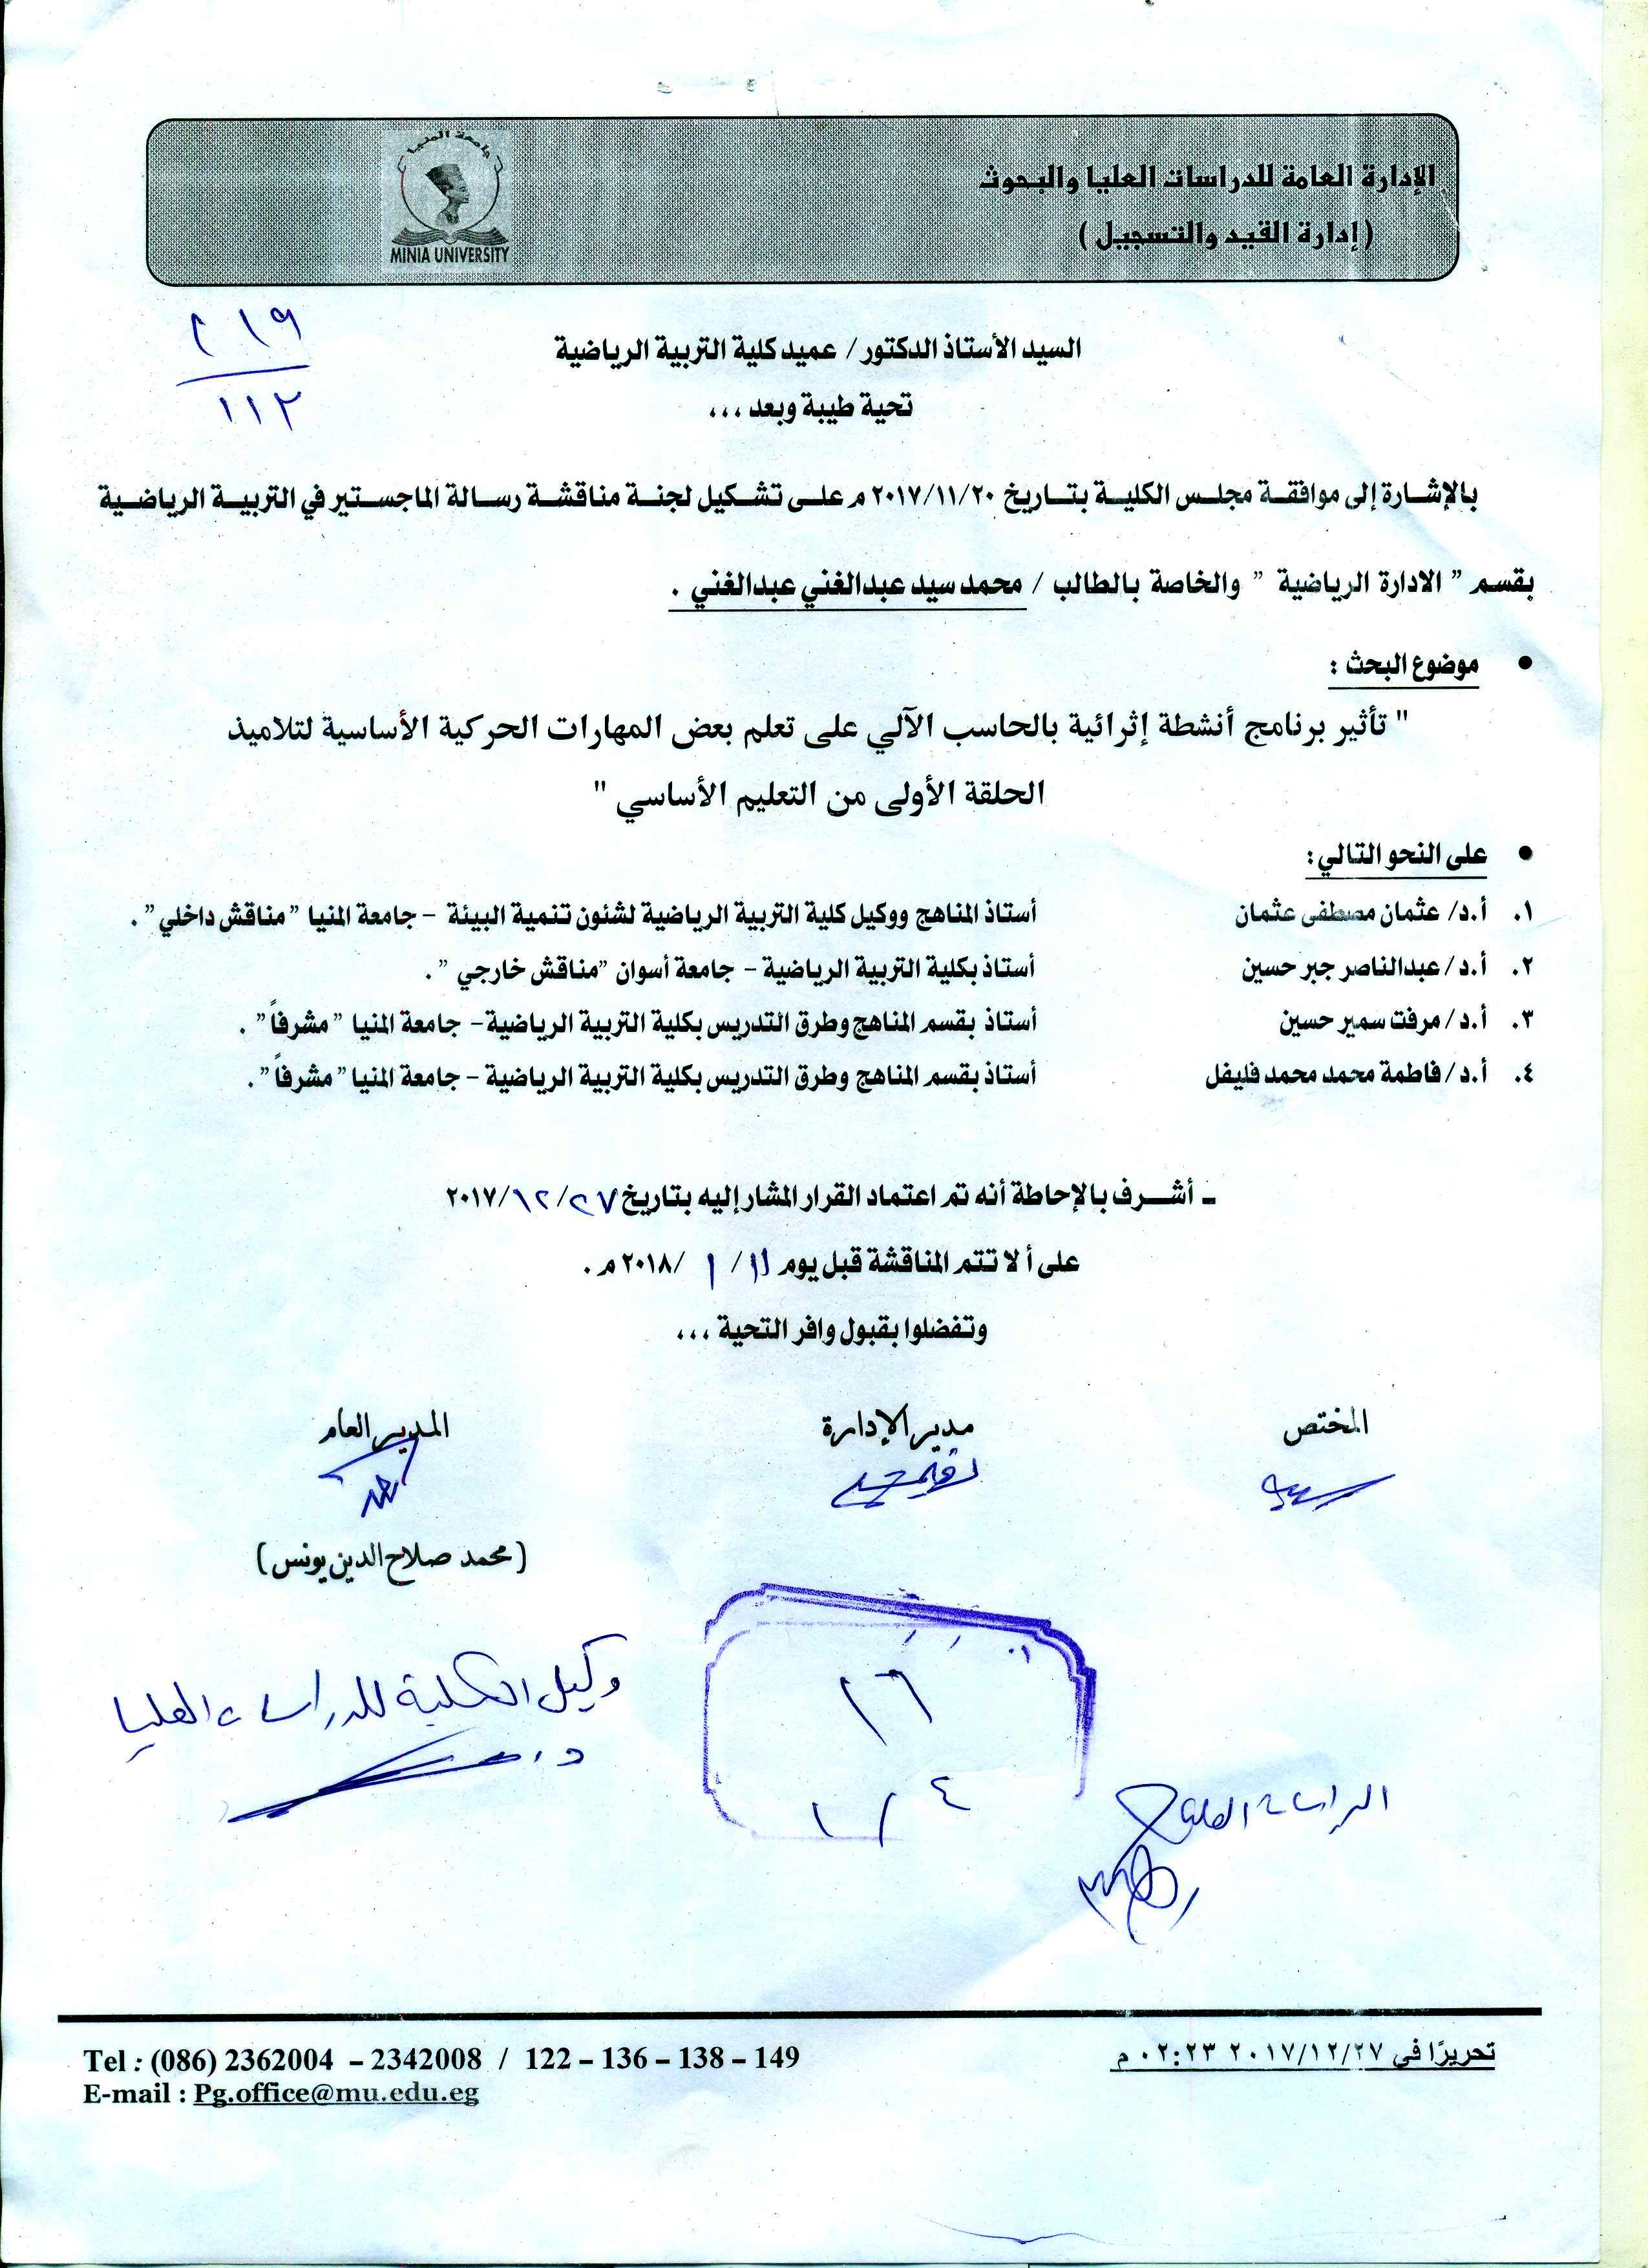 الإدارة العامة للدراسات العليا والبحوث
(إدارة القيد والتسجيل)
جامعة المنيا
MINIA UNIVERSITY
٢١٩
١١٢
السيد الأستاذ الدكتور / عميد كلية التربية الرياضية
تحية طيبة وبعد ...
بالإشارة إلى موافقة مجلس الكلية بتاريخ ٢٠١٧/١١/٢٠ م على تشكيل لجنة مناقشة رسالة الماجستير في التربية الرياضية
بقسم " الادارة الرياضية " والخاصة بالطالب / محمد سيد عبدالغني عبدالغني .
• موضوع البحث :
" تأثير برنامج أنشطة إثرائية بالحاسب الآلي على تعلم بعض المهارات الحركية الأساسية لتلاميذ
الحلقة الأولى من التعليم الأساسي "
• على النحو التالي:
١. أ.د/ عثمان مصطفى عثمان أستاذ المناهج ووكيل كلية التربية الرياضية لشئون تنمية البيئة – جامعة المنيا "مناقش داخلي" .
٢. أ.د/ عبدالناصر جبر حسين أستاذ بكلية التربية الرياضية – جامعة أسوان "مناقش خارجي" .
٣. أ.د/ مرفت سمير حسين أستاذ بقسم المناهج وطرق التدريس بكلية التربية الرياضية – جامعة المنيا "مشرفاً" .
٤. أ.د/ فاطمة محمد محمد فليفل أستاذ بقسم المناهج وطرق التدريس بكلية التربية الرياضية – جامعة المنيا "مشرفاً" .
ـ أشرف بالإحاطة أنه تم اعتماد القرار المشار إليه بتاريخ ٢٠١٧/١٢/٢٧
على ألا تتم المناقشة قبل يوم ١١/ ١ /٢٠١٨ م .
وتفضلوا بقبول وافر التحية ...
المختص مدير الإدارة المدير العام
(محمد صلاح الدين يونس)
وكيل الكلية للدراسات العليا
د.
٢٦
٤ / ١
الدراسات العليا
تحريرًا في ٢٠١٧/١٢/٢٧ ٠٢:٢٣ م
Tel : (086) 2362004 – 2342008 / 122 – 136 – 138 – 149
E-mail : Pg.office@mu.edu.eg